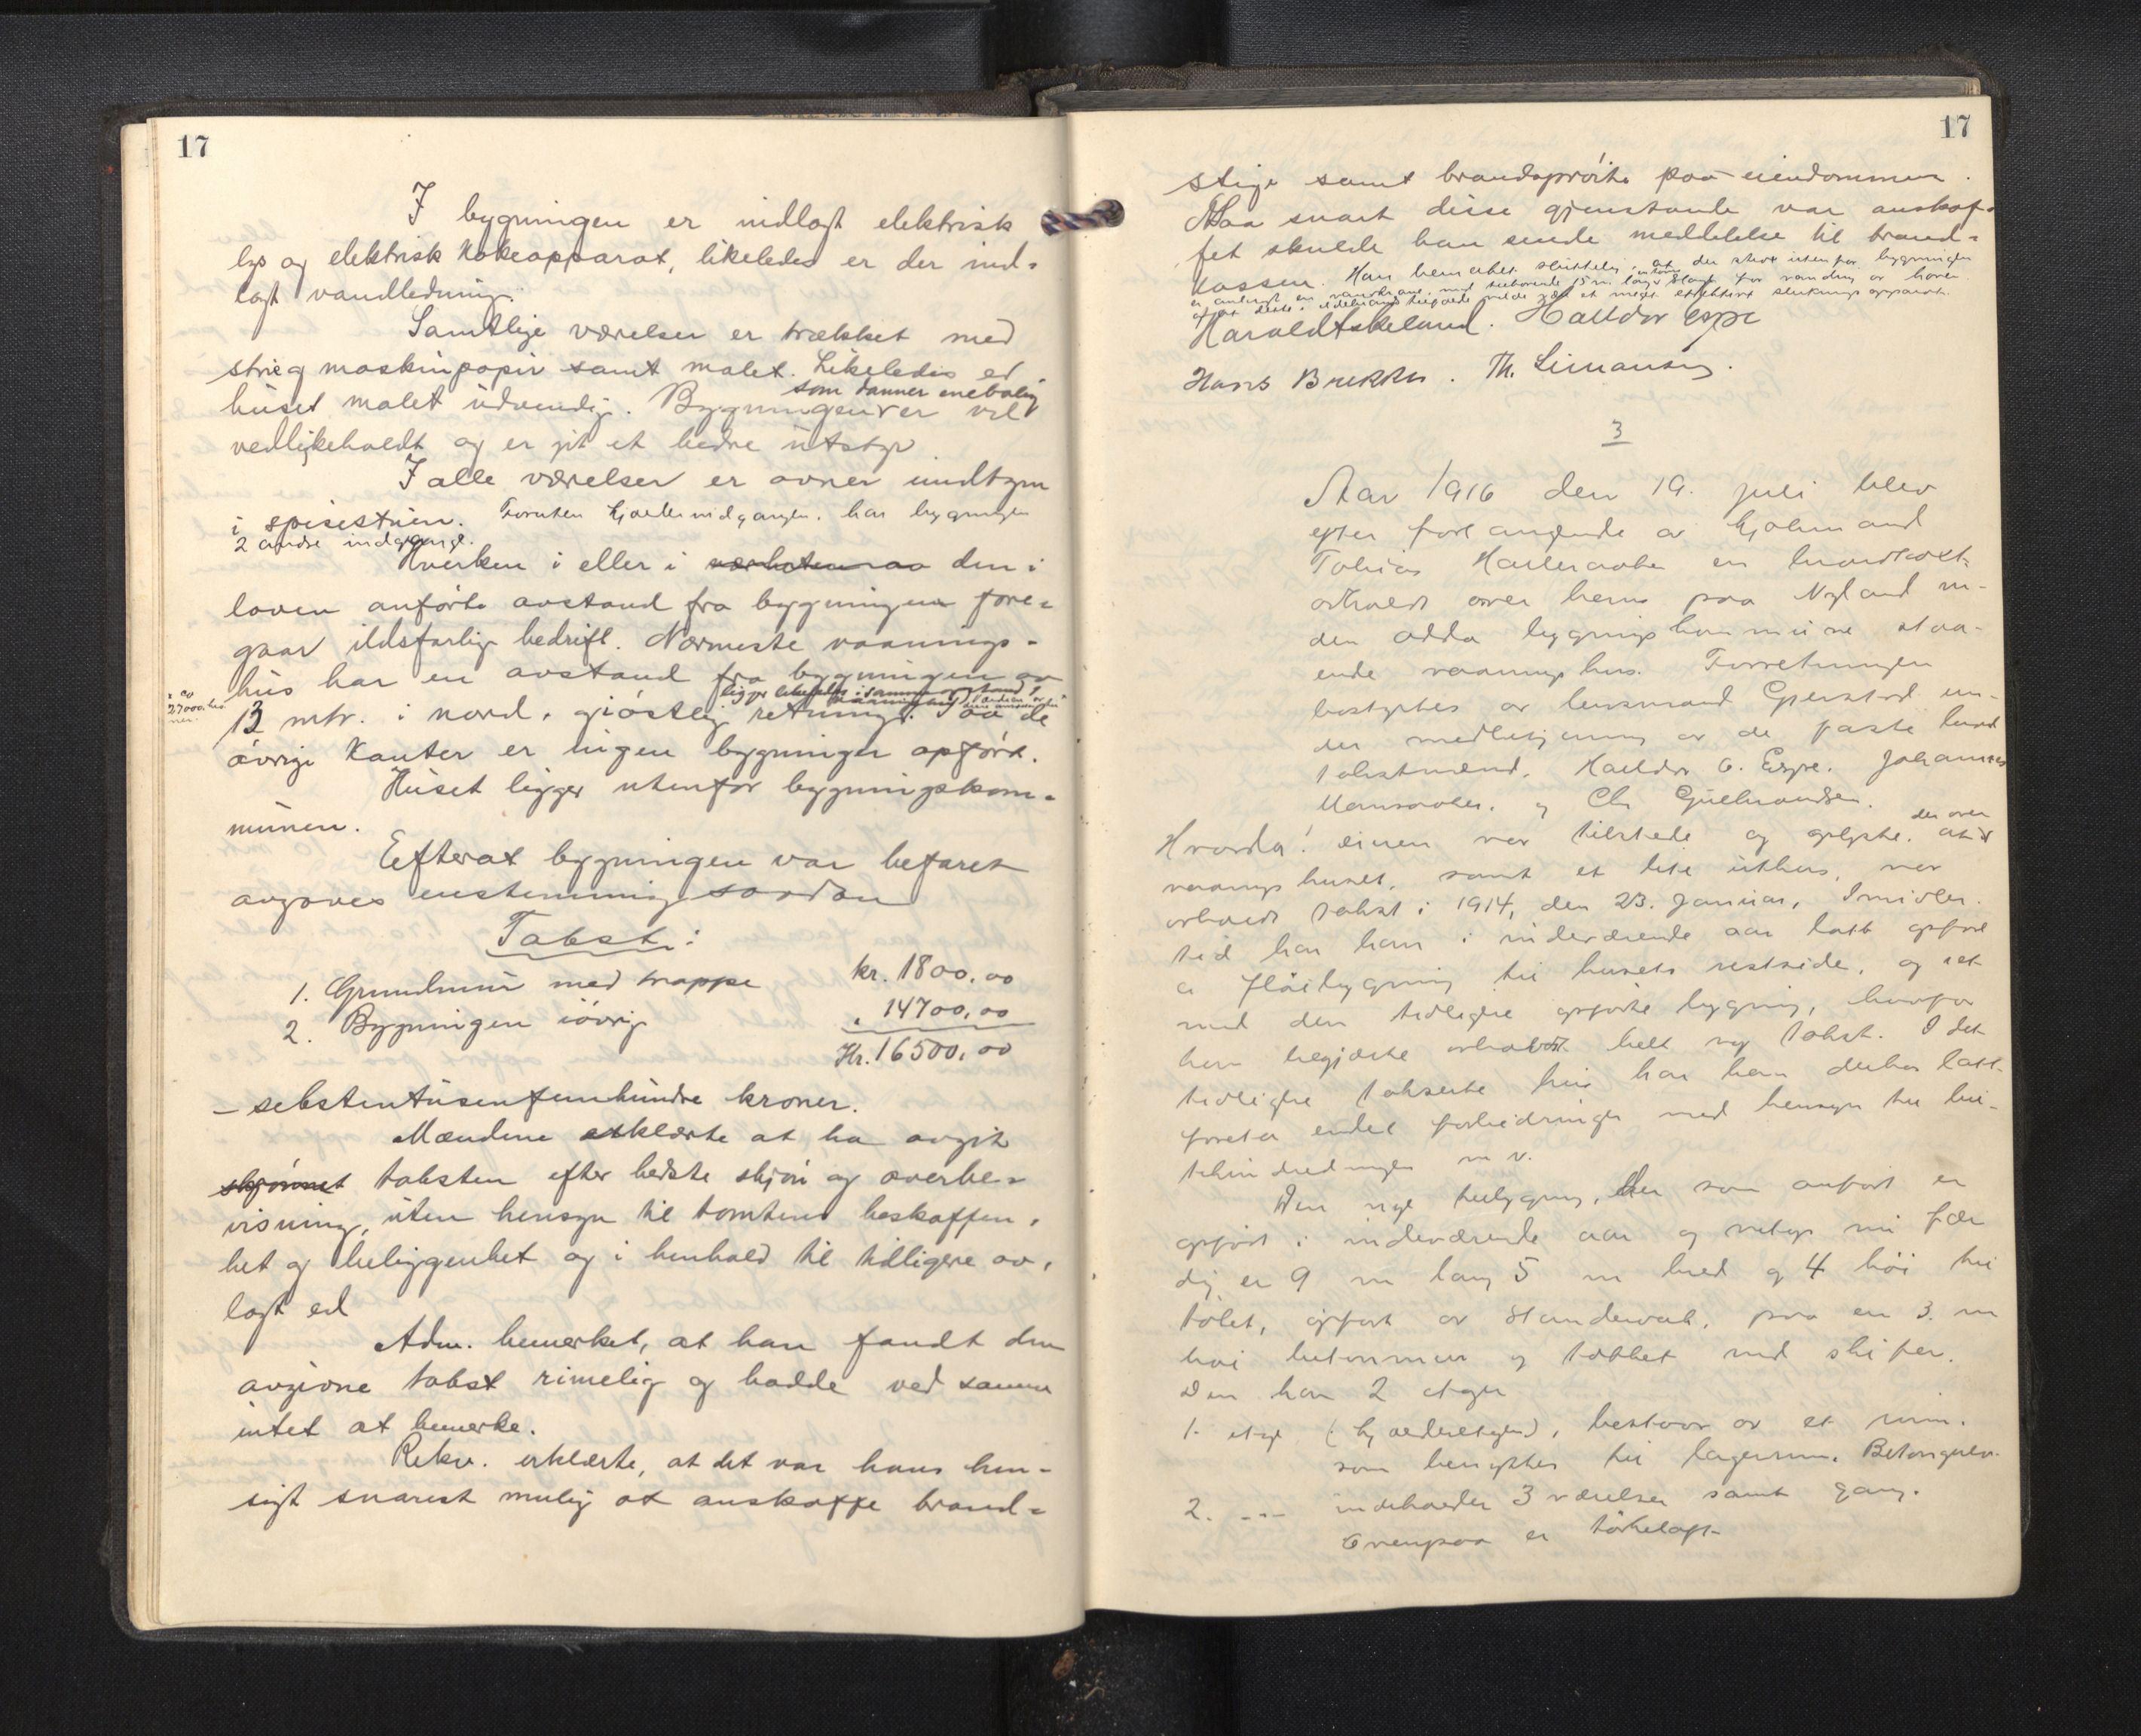 17
I bygningen er indlagt elektrisk
lys og elektrisk kokeapparat, likeledes er der ind-
lagt vandledning.
Samtlige værelser er trækket med
strie og maskinpapir samt malet. Likeledes er
som danner enebolig
huset malet utvendig. Bygningen er vel
vedlikeholdt og er git et bedre utstyr.
I alle værelser er ovner undtagen
i spisestuen. Foruten kjælderindgangen har bygningen
2 andre indgange.
Hverken i eller i den i
loven anförte avstand fra bygningen fore-
gaar ildsfarlig bedrift. Nærmeste vaanings-
hus har en avstand fra bygningen av
ligger likeledes i samme avstand
27000
13 mtr. i nord. retning. Paa de
övrige kanter er ingen bygninger opfört.
Huset ligger utenfor bygningskom-
munen.
Efterat bygningen var befaret
avgaves enstemmig saadan
Takst:
1. Grundmur med trappe kr. 1800,00
2. Bygningen iövrig " 14700,00
Kr. 16500,00
- sekstentusenfemhundre kroner.
Mændene erklærte at ha avgit
skjønnet taksten efter bedste skjön og overbe-
visning, uten hensyn til tomtens beskaffen-
het og beliggenhet og i henhold til tidligere av-
lagt ed
Adm. bemerket, at han fandt den
avgivne takst rimelig og hadde ved samme
intet at bemerke.
Rekv. erklærte, at det var hans hen-
sigt snarest mulig at anskaffe brand-
17
stige samt brandspröite paa eiendommen.
Saa snart disse gjenstande var anskaf-
fet skulde han sende meddelelse til brand-
kassen. Han bemerket sluttelig, at der straks utenfor bygningen
er anbragt en vandkran med tilhörende 15 m. lang slange for vanding av haven
og at dette i ildebrands tilfælde vilde være et meget effektivt slukningsapparat.
Harald Askeland. Halldor Espe
Hans Brekke. Th. Simonsen.
3
Aar 1916 den 19. juli blev
efter forlangende av kjöbmand
Tobias en brandtakst
avholdt over hans paa Nyland in-
den Odda bygningskommune staa-
ende vaaningshus. Forretningen
bestyrtes av lensmand Gjerstad un-
der medbetjening av de faste brand
takstmænd, Halldor O. Espe. Johannes
og Chr Gulbrandsen.
Hvorda! eieren var tilstede og oplyste, at der over
vaaningshuset, samt et lite uthus, var
avholdt takst i 1914, den 23. januar. Imidler-
tid har han i indeværende aar latt opföre
en flöibygning til husets vestside, og i et
med den tidligere opförte bygning, hvorfor
han begjærte avholdt helt ny takst. I det
tidligere takserte hus har han derhos latt
foreta endel forbedringer med hensyn til bu-
tikindredningen m v.
Den nye tilbygning, der som anfört er
opfört i indeværende aar og netop nu fær-
dig er 9 m lang 5 m bred og 4 höi til
taket, opfört av standerverk, paa en 3 m
höi betonmur og tækket med skifer.
Den har 2 etager
1. etage (kjælderetagen), bestaar av et rum.
som benyttes til lagerrum. Betongulv.
2. -"- indeholder 3 værelser samt gang.
Ovenpaa er törkeloft